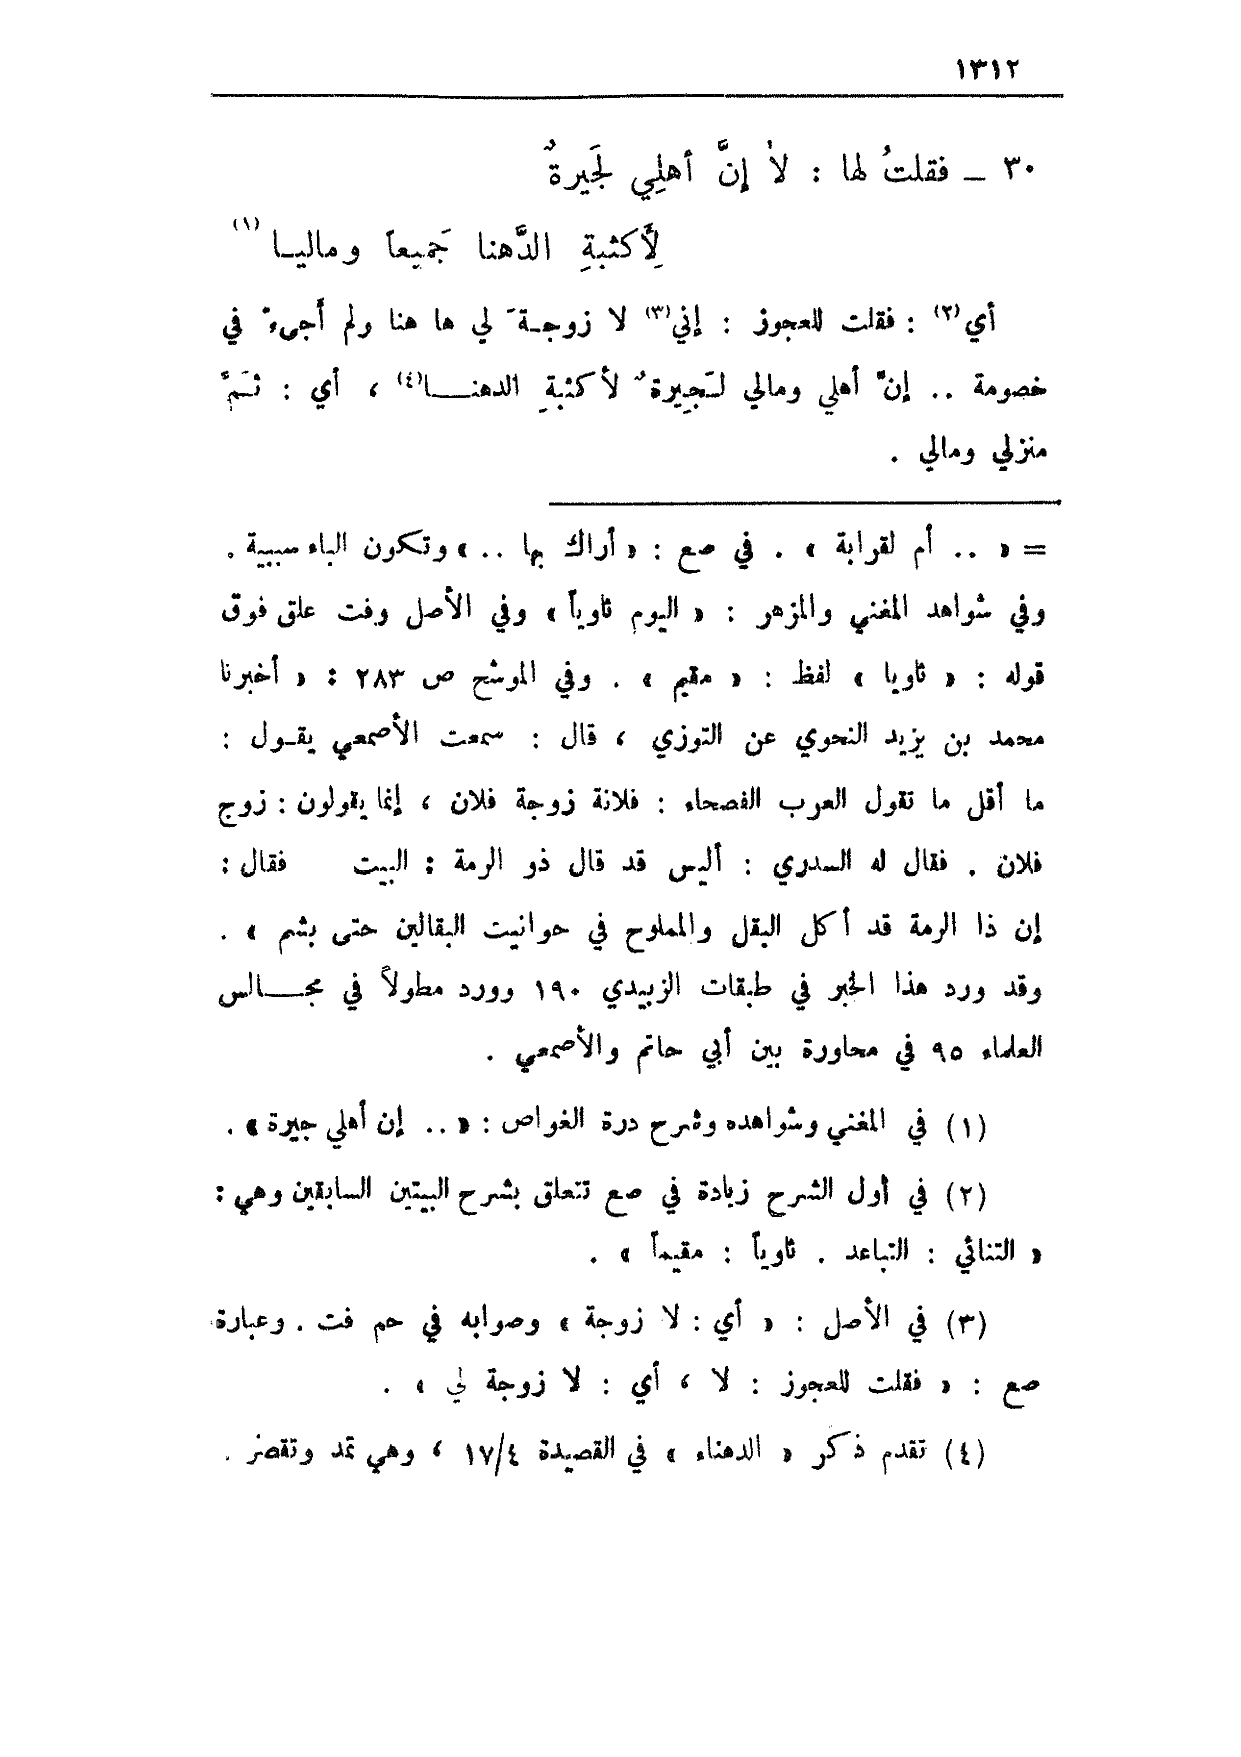 ١٣١٢
٣٠ ـ فقلتُ لها : لا إنَّ أهلِي لَجَيرةٌ
لِأَكثبةِ الدَّهنا جَميعاً وماليـا (١)
أي(٢) : فقلت للعجوز : إني(٣) لا زوجـةَ لي ها هنا ولم أَجىءْ في
خصومة .. إنَّ أهلي ومالي لـَجِيرةٌ لأكثبةِ الدهنــا(٤) ، أي : ثـَمَّ
منزلي ومالي .
= « .. أم لقرابة » . في صع : « أراك بها .. » وتكون الباء سببية .
وفي شواهد المغني والمزهر : « اليوم ثاوياً » وفي الأصل وفت علق فوق
قوله : « ثاويا » لفظ : « مقيم » . وفي الموشح ص ٢٨٣ : « أخبرنا
محمد بن يزيد النحوي عن التوزي ، قال : سمعت الأصمعي يقـول :
ما أقل ما تقول العرب الفصحاء : فلانة زوجة فلان ، إنما يقولون : زوج
فلان . فقال له السدري : أليس قد قال ذو الرمة : البيت فقال :
إن ذا الرمة قد أكل البقل والمملوح في حوانيت البقالين حتى بشم » .
وقد ورد هذا الخبر في طبقات الزبيدي ١٩٠ وورد مطولاً في مجــالس
العلماء ٩٥ في محاورة بين أبي حاتم والأصمعي .
(١) في المغني وشواهده وشرح درة الغواص : « .. إن أهلي جيرة » .
(٢) في أول الشرح زيادة في صع تتعلق بشرح البيتين السابقين وهي :
« التنائي : التباعد . ثاوياً : مقيماً » .
(٣) في الأصل : « أي : لا زوجة » وصوابه في حم فت . وعبارة
صع : « فقلت للعجوز : لا ، أي : لا زوجة لي » .
(٤) تقدم ذكر « الدهناء » في القصيدة ١٧/٤ ، وهي تمد وتقصر .